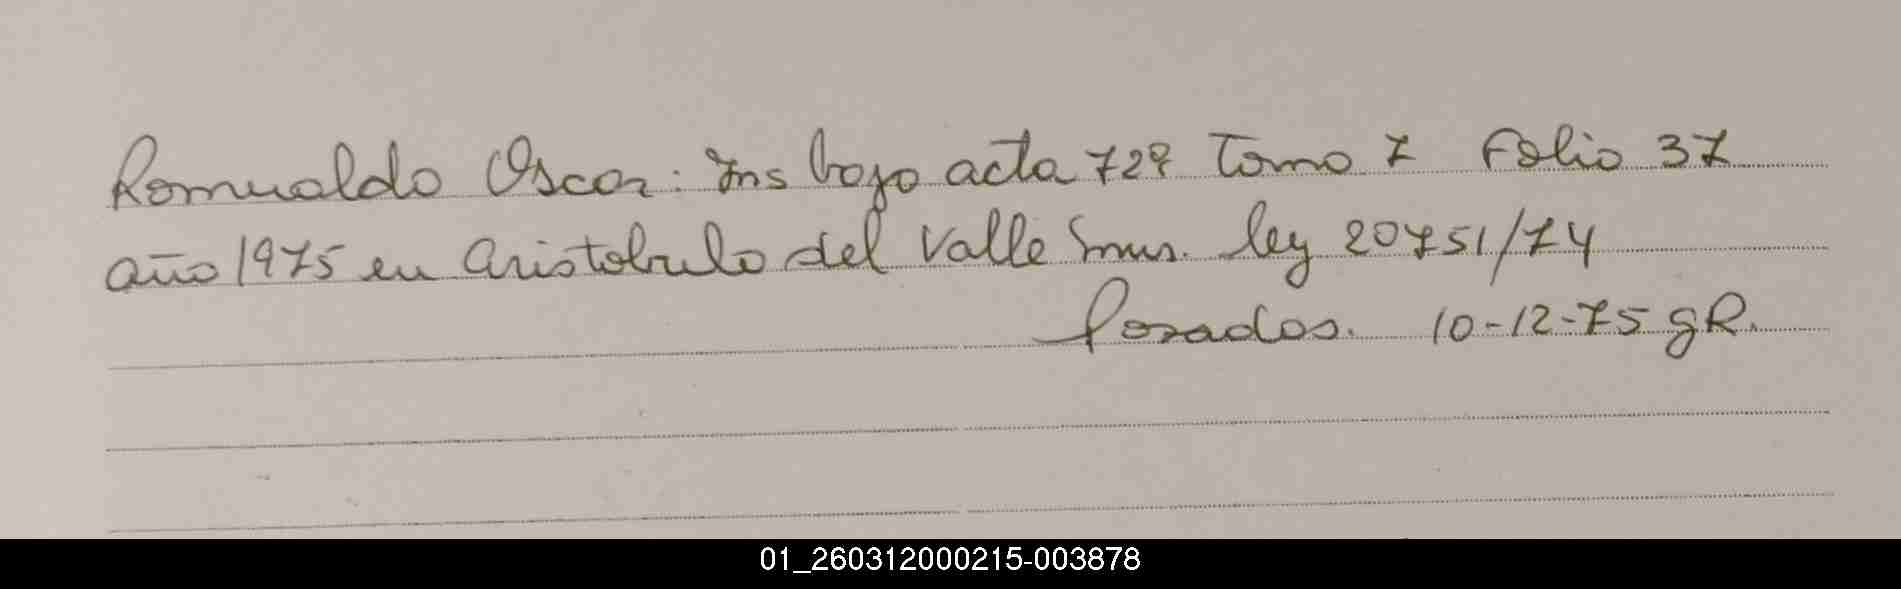 Romualdo Oscar: Ins bajo acta 729 Tomo 7 Folio 37
año 1975 en Aristobulo del Valle Mns. ley 20751/74
Posadas. 10-12-75 gR.
01_260312000215-003878